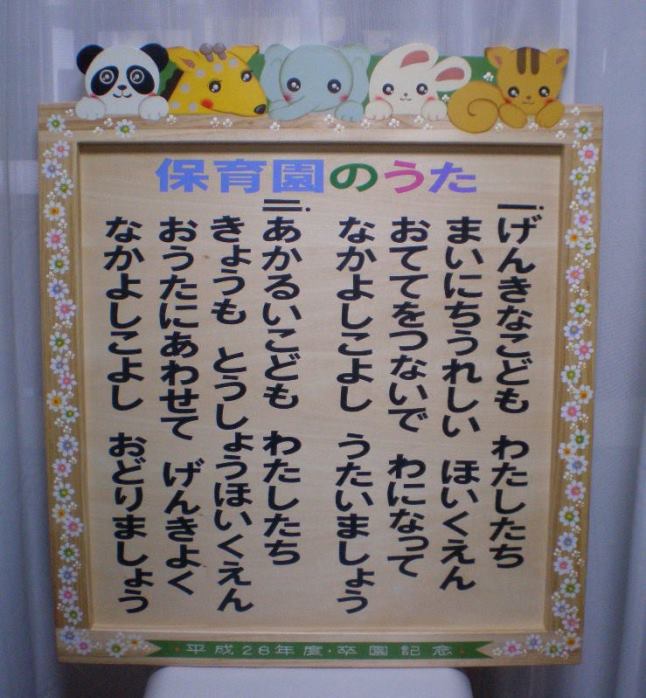 保育園のうた
一.げんきなこども わたしたち
まいにちうれしい ほいくえん
おててをつないで わになって
なかよしこよし うたいましょう
二.あかるいこども わたしたち
きょうも とうしょうほいくえん
おうたにあわせて げんきよく
なかよしこよし おどりましょう
平成26年度・卒園記念